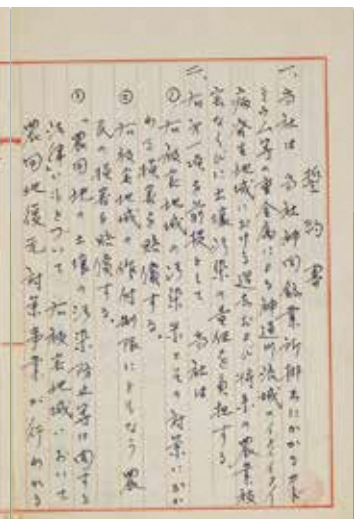 誓約書
一、当社は、当社神岡鉱業所排出にかかるカド
ミウム等の重金属による神通川流域のイタイイタイ
病発生地域における過去および将来の農業被
害ならびに土壌汚染の責任を負担する。
二、右第一項を前提として、当社は
① 右被害地域の汚染米とその対策にかか
わる損害を賠償する。
② 右被害地域の作付制限にともなう農
民の損害を賠償する。
③ 「農用地の土壌の汚染防止等に関する
法律」にもとづいて右被害地域において
農用地復元対策事業が行われる